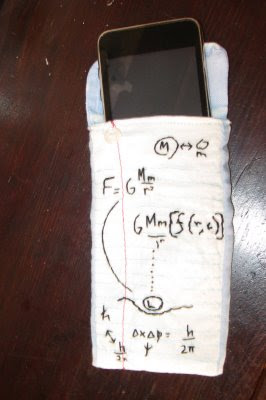 M ↔ m
F = G Mm/r²
G Mm/r² {f(r,c)}
h
h/2π
ΔxΔp = h/2π
ψ